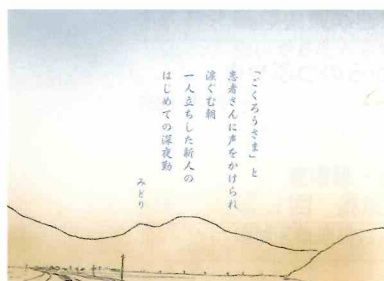 「ごくろうさま」と
患者さんに声をかけられ
涙ぐむ朝
一人立ちした新人の
はじめての深夜勤
みどり